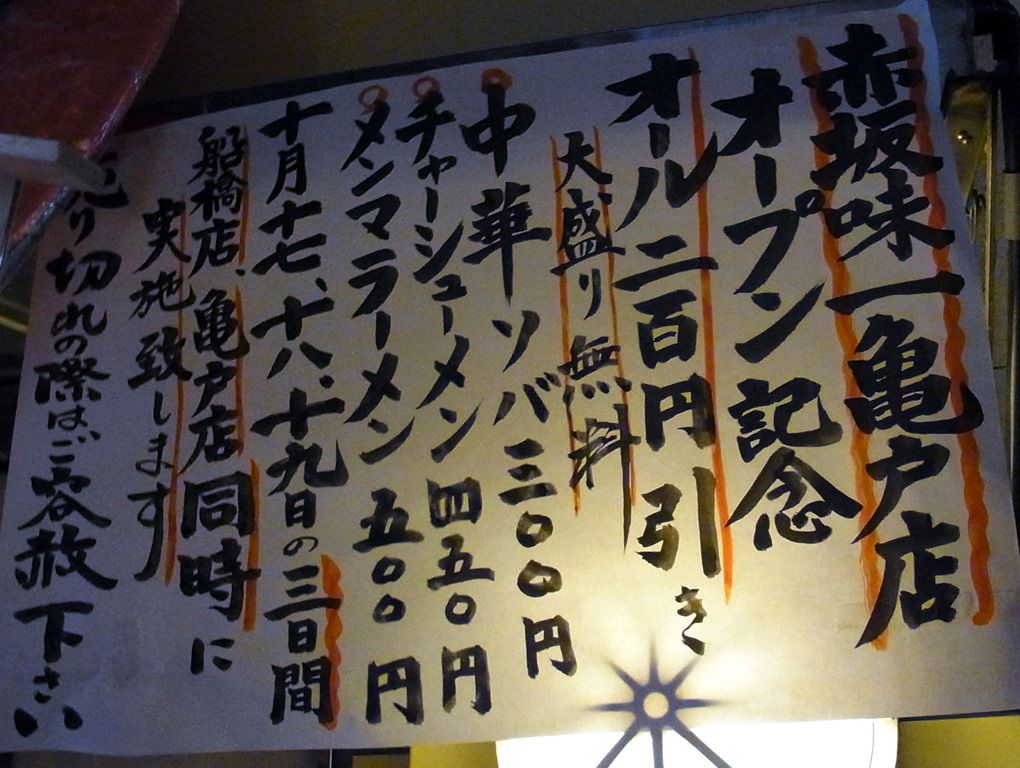 赤坂味一亀戸店
オープン記念
オール二百円引き
大盛り無料
中華ソバ三〇〇円
チャーシューメン四五〇円
メンマラーメン五〇〇円
十月十七、十八、十九日の三日間
船橋店、亀戸店同時に
実施致します
売り切れの際はご容赦下さい